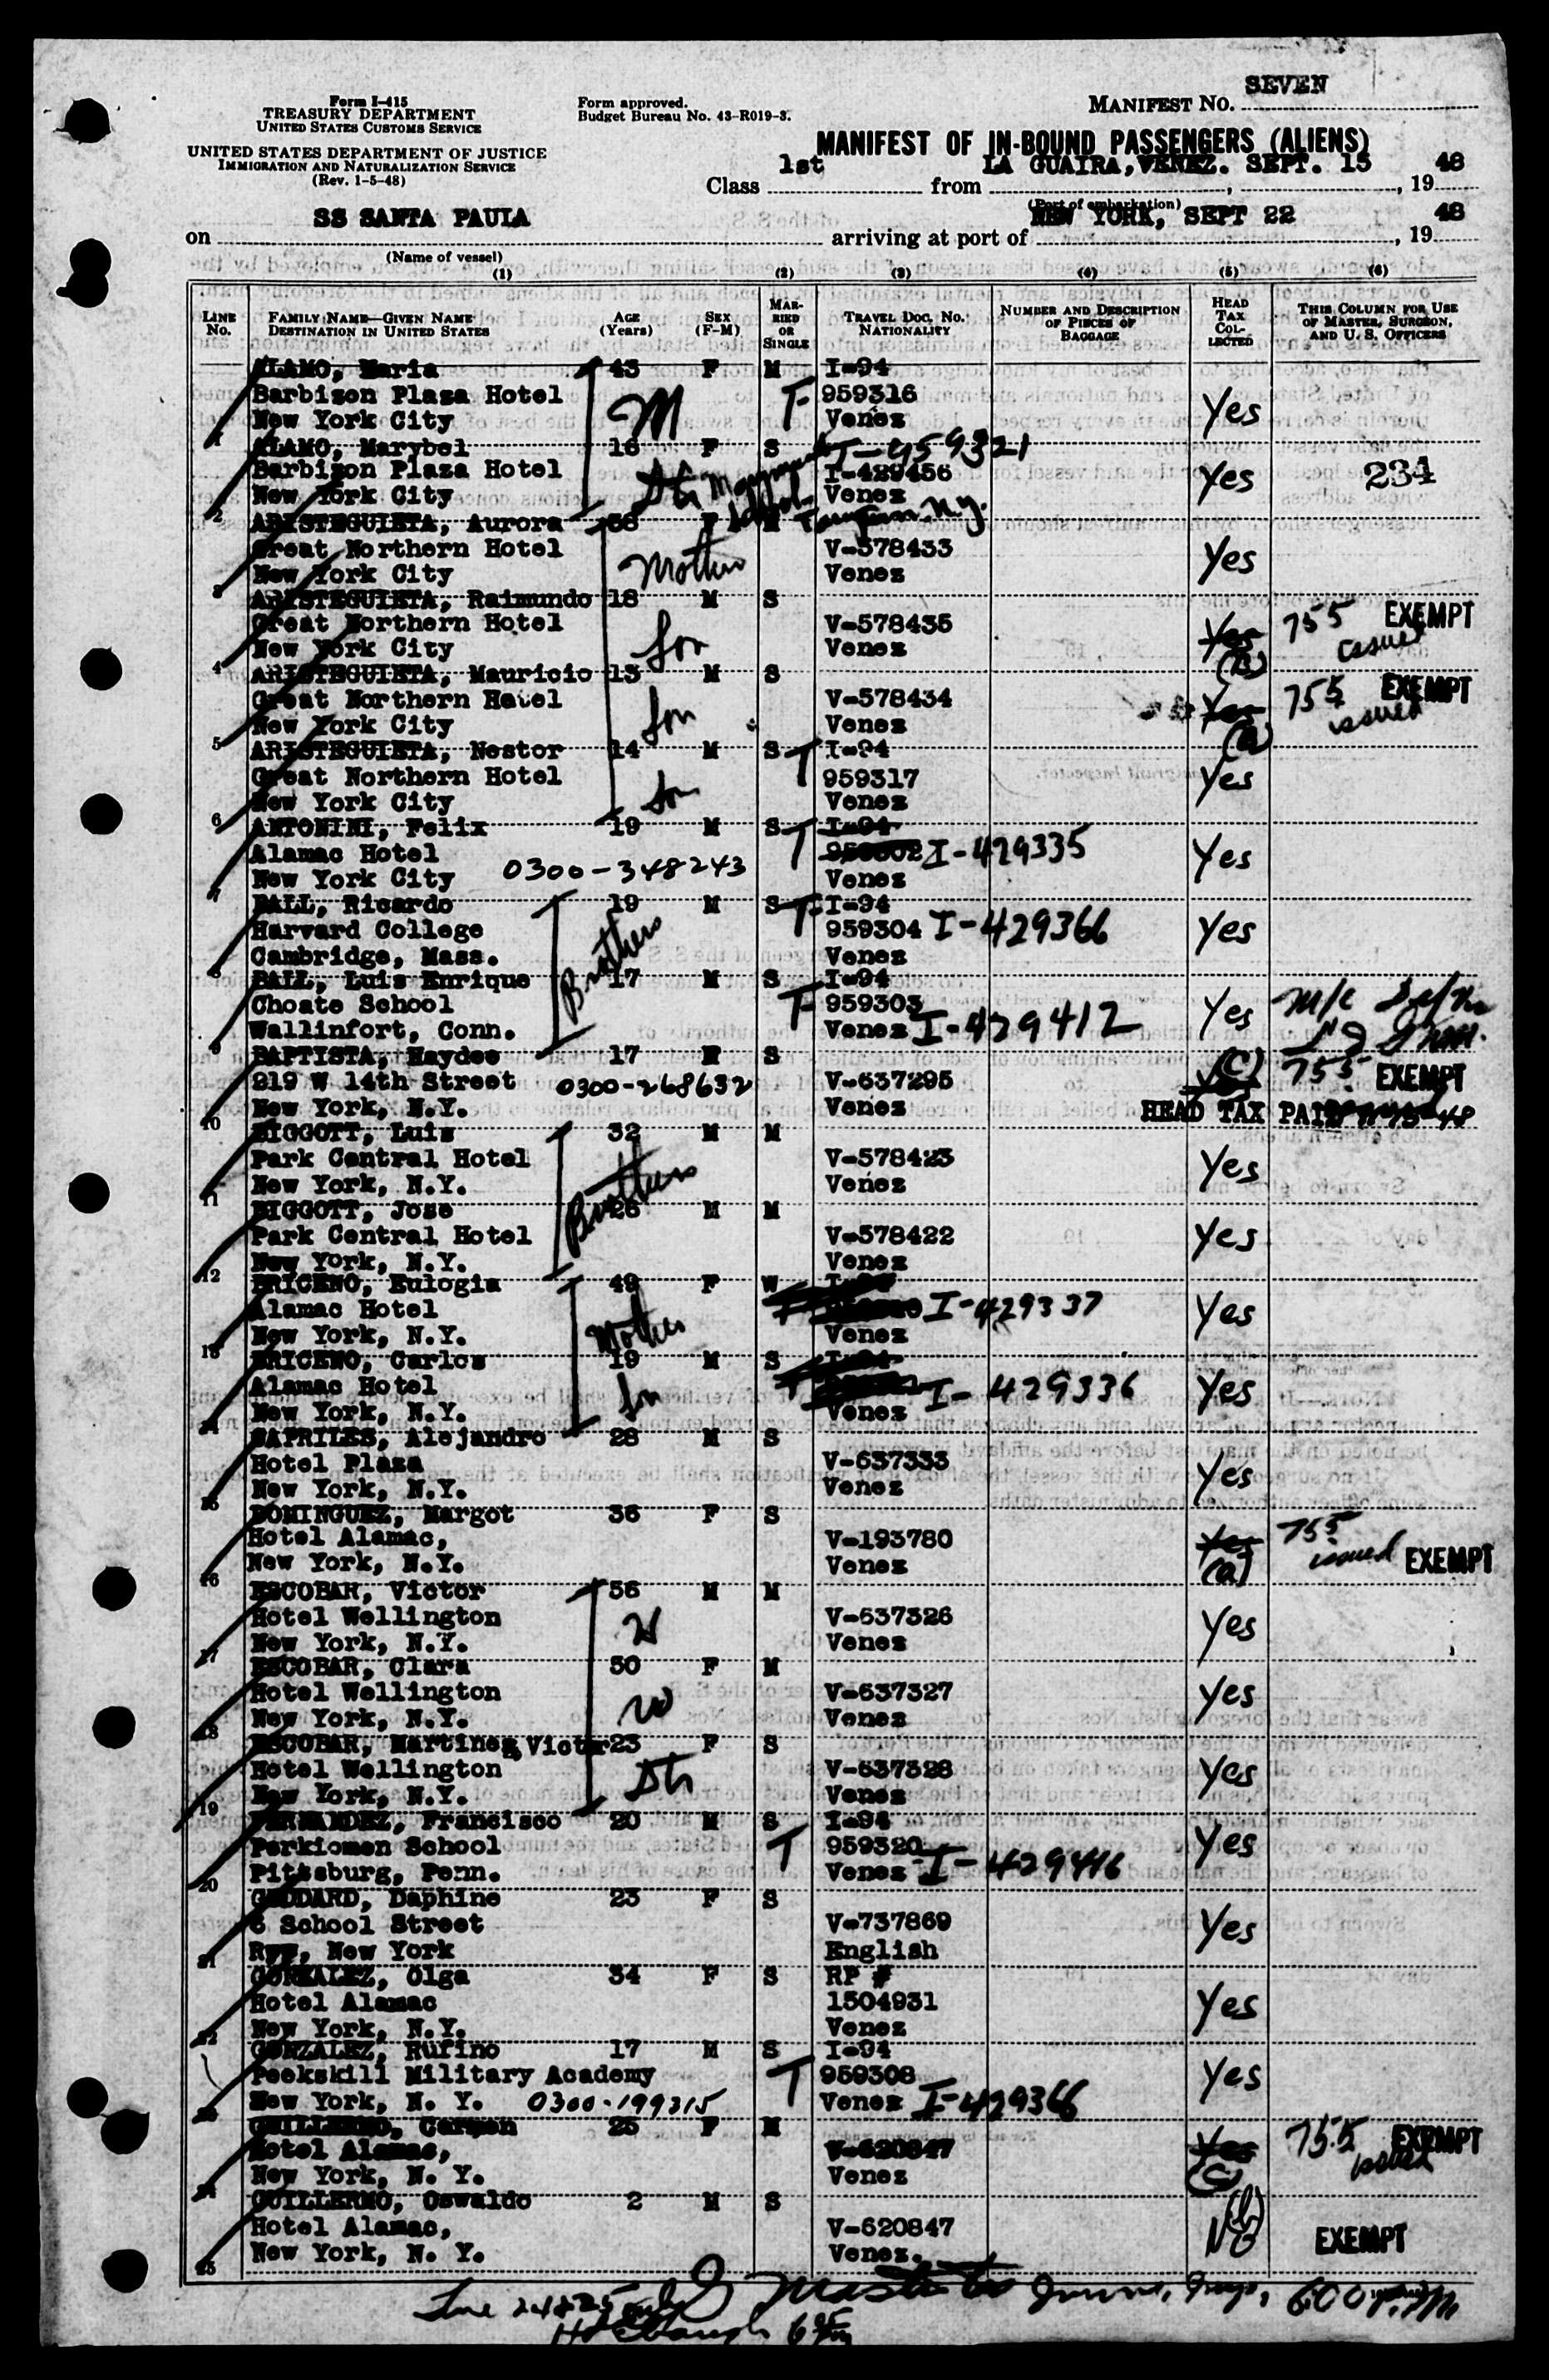 Form I-415
TREASURY DEPARTMENT
UNITED STATES CUSTOMS SERVICE
UNITED STATES DEPARTMENT OF JUSTICE
IMMIGRATION AND NATURALIZATION SERVICE
(Rev. 1-5-48)
Form approved.
Budget Bureau No. 43-R019-3.
MANIFEST No. SEVEN
MANIFEST OF IN-BOUND PASSENGERS (ALIENS)
Class 1st from LA GUAIRA, VENEZ. SEPT. 15, 1948
(Port of embarkation)
on SS SANTA PAULA arriving at port of NEW YORK, SEPT 22, 1948
(Name of vessel)
(1) (2) (3) (4) (5) (6)
LINE No. FAMILY NAME—GIVEN NAME DESTINATION IN UNITED STATES AGE (Years) SEX (F-M) MARRIED OR SINGLE TRAVEL DOC. No. NATIONALITY NUMBER AND DESCRIPTION OF PIECES OF BAGGAGE HEAD TAX COLLECTED THIS COLUMN FOR USE OF MASTER, SURGEON, AND U. S. OFFICERS
ALAMO, Maria 43 F M I-94
Barbizon Plaza Hotel M T 959316 Yes
1 New York City Venez
ALAMO, Marybel 16 F S T-959321
Barbizon Plaza Hotel Dtr I-429456 Yes 234
2 New York City Venez
ARISTEGUIETA, Aurora 38 F M N.Y.
Great Northern Hotel Mother V-578433 Yes
3 New York City Venez
ARISTEGUIETA, Raimundo 18 M S
Great Northern Hotel Son V-578435 Yes 755 issued EXEMPT
4 New York City Venez
ARISTEGUIETA, Mauricio 13 M S
Great Northern Hotel Son V-578434 Yes (a) 755 issued EXEMPT
5 New York City Venez
ARISTEGUIETA, Nestor 14 M S T I-94
Great Northern Hotel Son 959317 Yes
6 New York City Venez
ANTONINI, Felix 19 M S T I-94
Alamac Hotel I-429335 Yes
7 New York City 0300-348243 Venez
BALL, Ricardo 19 M S T I-94
Harvard College Brothers 959304 I-429366 Yes
8 Cambridge, Mass. Venez
BALL, Luis Enrique 17 M S I-94
Choate School T 959303 Yes
9 Wallinfort, Conn. Venez I-429412
BAPTISTA, Haydee 17 F S (C) 755 EXEMPT
919 W 14th Street 0300-268632 V-637295
10 New York, N.Y. Venez HEAD TAX PAID
BIGGOTT, Luis 32 M M
Park Central Hotel Brothers V-578423 Yes
11 New York, N.Y. Venez
BIGGOTT, Jose 26 M M
Park Central Hotel V-578422 Yes
12 New York, N.Y. Venez
BRICENO, Eulogia 49 F W
Alamac Hotel Mother I-429337 Yes
13 New York, N.Y. Venez
BRICENO, Carlos 19 M S I-94
Alamac Hotel Son I-429336 Yes
14 New York, N.Y. Venez
CAPRILES, Alejandro 28 M S
Hotel Plaza V-637333 Yes
15 New York, N.Y. Venez
DOMINGUEZ, Margot 36 F S
Hotel Alamac, V-193780 Yes (a) 755 issued EXEMPT
16 New York, N.Y. Venez
ESCOBAR, Victor 56 M M
Hotel Wellington H V-637326 Yes
17 New York, N.Y. Venez
ESCOBAR, Clara 50 F M
Hotel Wellington W V-637327 Yes
18 New York, N.Y. Venez
ESCOBAR, Martinez, Victr 23 F S
Hotel Wellington Dtr V-637328 Yes
19 New York, N.Y. Venez
FERNANDEZ, Francisco 20 M S I-94
Perkiomen School T 959320 Yes
20 Pittsburg, Penn. Venez I-429446
GODDARD, Daphine 23 F S
6 School Street V-737869 Yes
21 Rye, New York English
GONZALEZ, Olga 34 F S RP #
Hotel Alamac 1504931 Yes
22 New York, N.Y. Venez
GONZALEZ, Rufino 17 M S I-94
Peekskill Military Academy T 959308 Yes
23 New York, N. Y. 0300-199315 Venez I-429366
GUILLERMO, Carmen 25 F M
Hotel Alamac, V-620847 Yes (C) 755 issued EXEMPT
24 New York, N. Y. Venez
GUILLERMO, Oswaldo 2 M S
Hotel Alamac, V-620847 No (b) EXEMPT
25 New York, N. Y. Venez.
Line 24 & 25